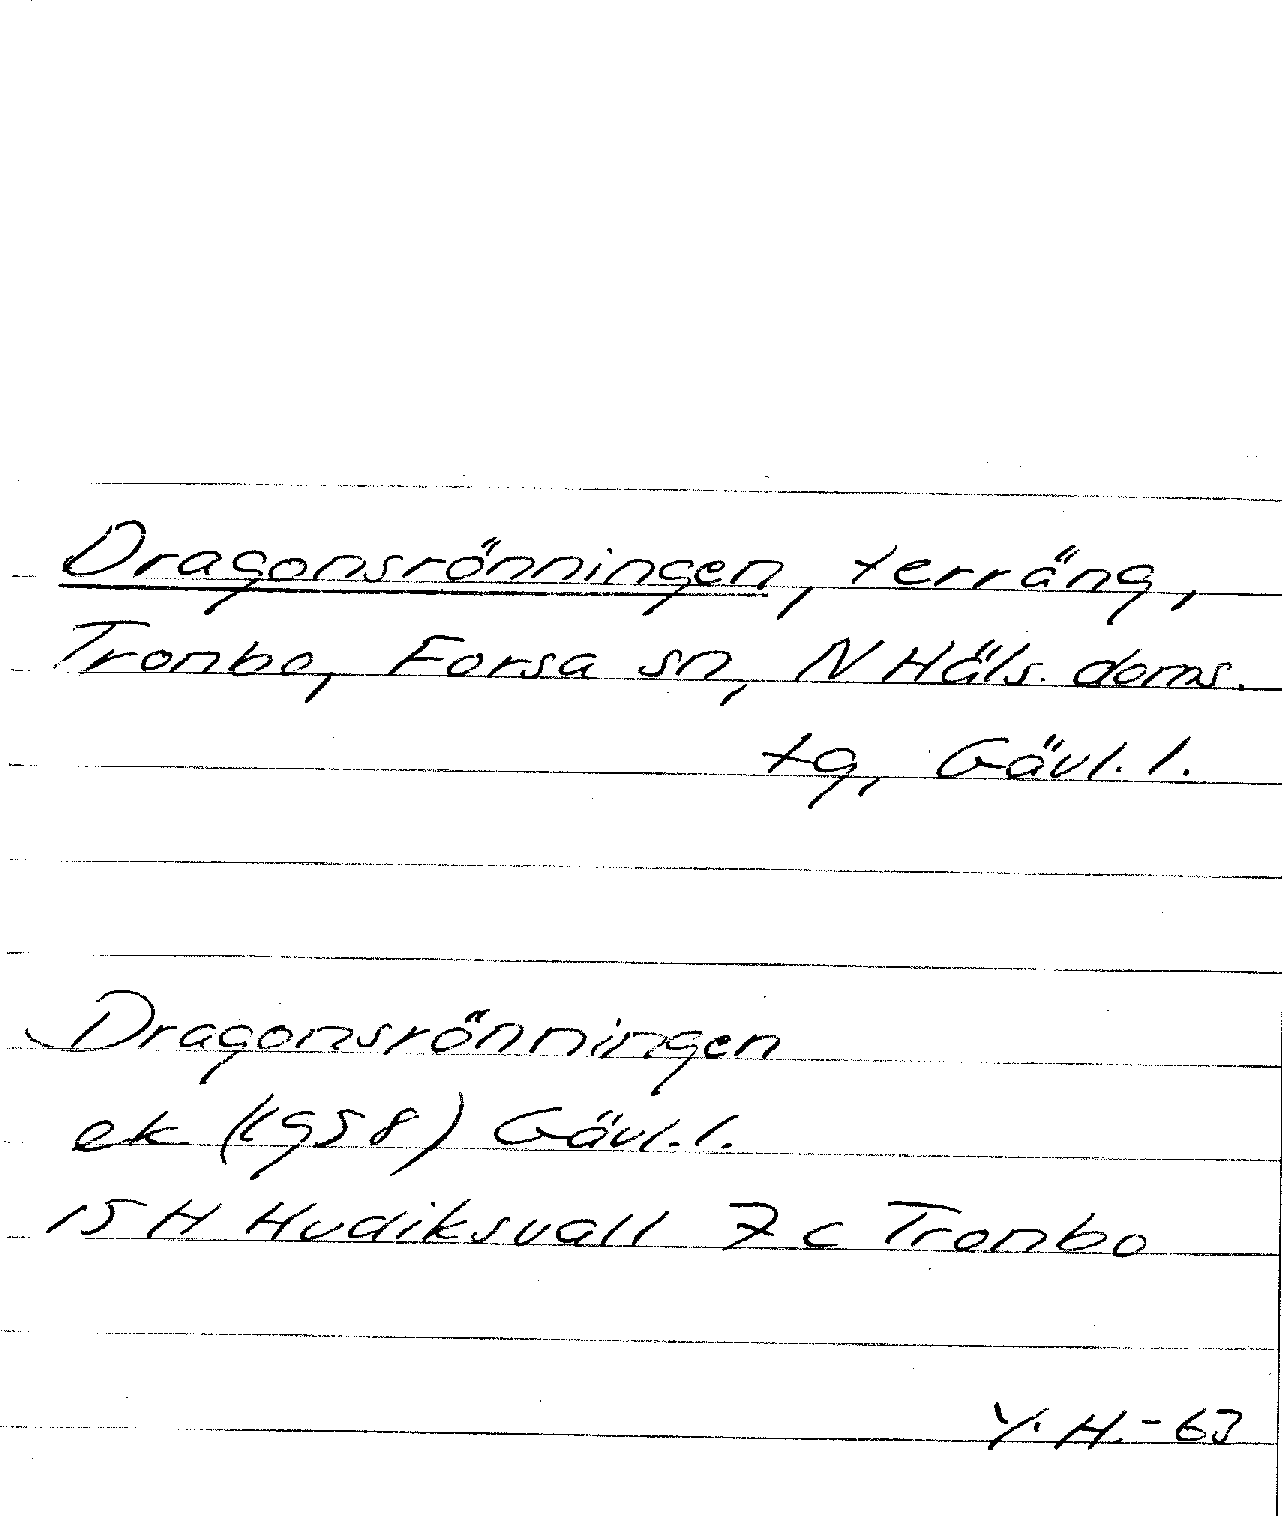 Dragonsrönningen, terräng,
Trombo, Forsa sn, N Häls. doms.
tg, Gävl. l.
Dragonsrönningen
ek (1958) Gävl. l.
15 H Hudiksvall 7 c Trombo
Y. H. - 63